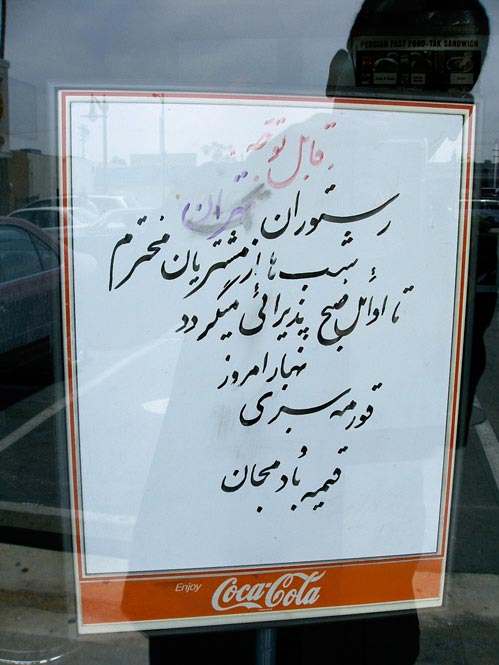 PERSIAN FAST FOOD-TAK SANDWICH
قابل توجه
رستوران تهران
شب ها از مشتریان محترم
تا اوائل صبح پذیرائی میگردد
نهار امروز
قورمه سبزی
و
قیمه بادمجان
Enjoy
Coca-Cola